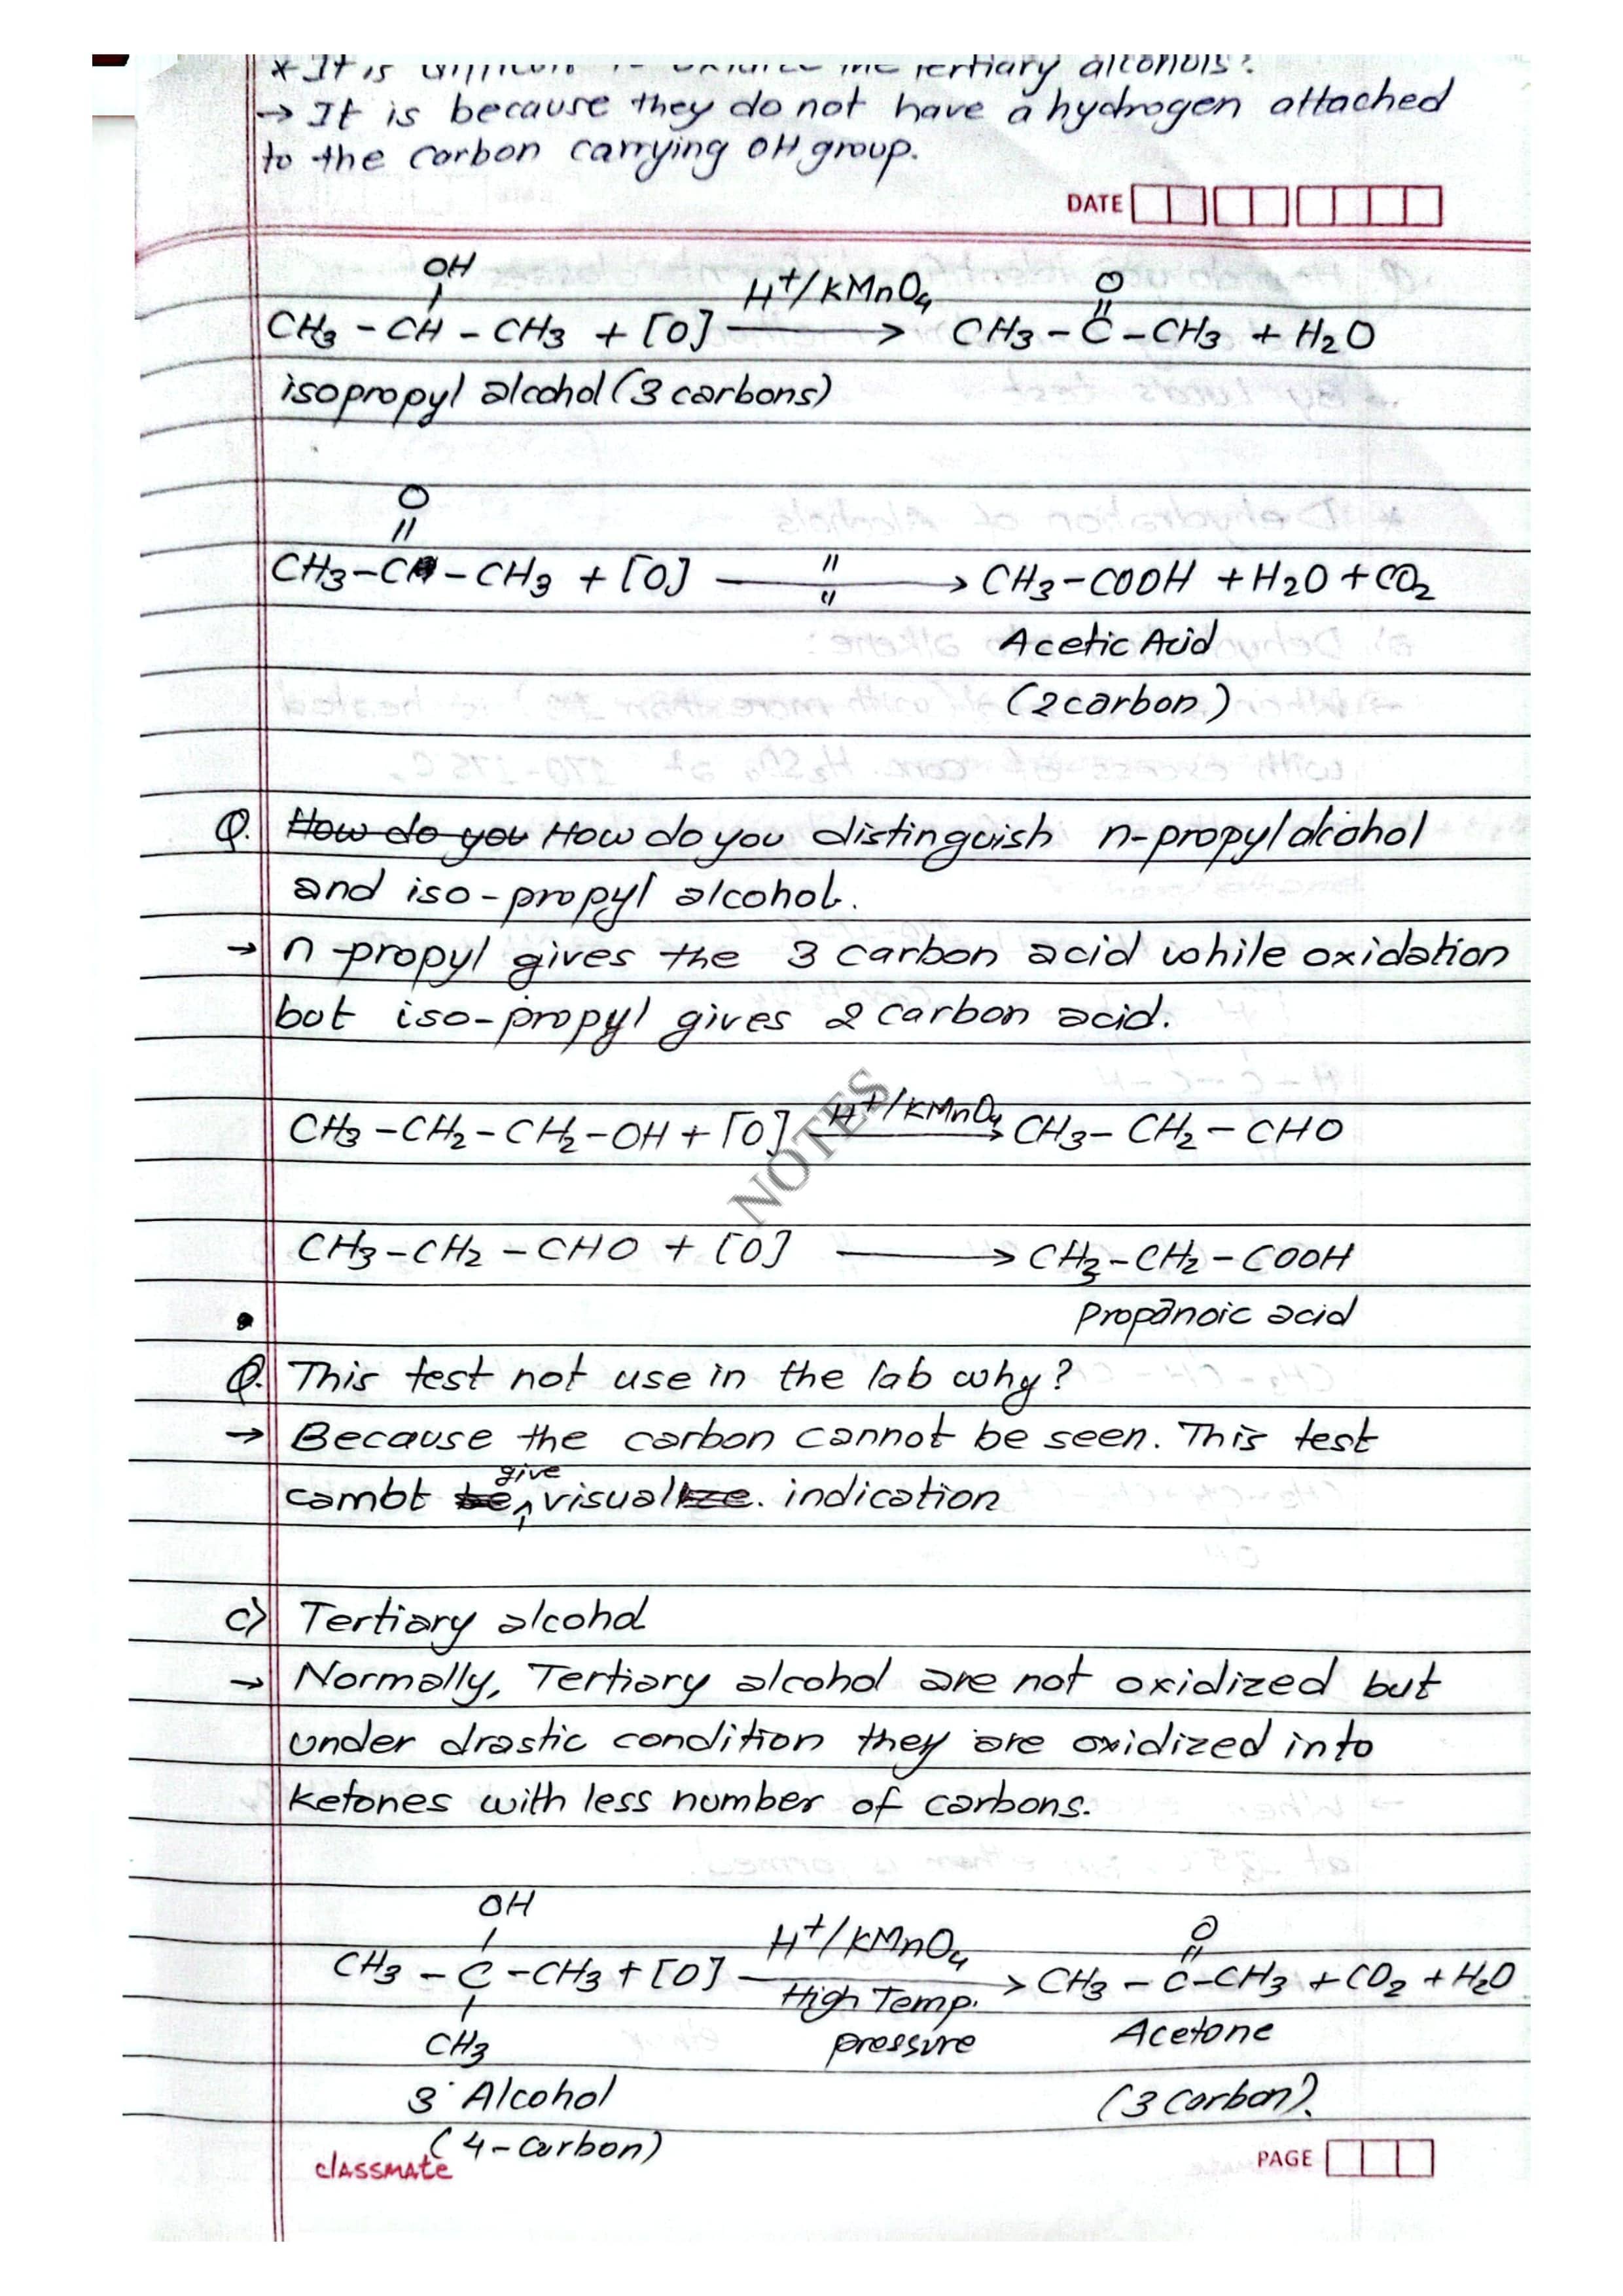 * It is difficult to oxidize the tertiary alcohols?
→ It is because they do not have a hydrogen attached
to the carbon carrying OH group.
DATE
OH
CH3 - CH - CH3 + [O] H+/KMnO4 → CH3 - C - CH3 + H2O
O
isopropyl alcohol (3 carbons)
O
CH3-C-CH3 + [O] → CH3-COOH + H2O + CO2
Acetic Acid
(2 carbon)
Q. How do you How do you distinguish n-propyl alcohol
and iso-propyl alcohol.
→ n-propyl gives the 3 carbon acid while oxidation
but iso-propyl gives 2 carbon acid.
CH3-CH2-CH2-OH + [O] H+/KMnO4 → CH3-CH2-CHO
NOTES
CH3-CH2-CHO + [O] → CH3-CH2-COOH
propanoic acid
Q. This test not use in the lab why?
→ Because the carbon cannot be seen. This test
give
cambt be visualize. indication
c) Tertiary alcohol
→ Normally, Tertiary alcohol are not oxidized but
under drastic condition they are oxidized into
ketones with less number of carbons.
OH
CH3 - C - CH3 + [O] H+/KMnO4 → CH3 - C - CH3 + CO2 + H2O
O
High Temp.
CH3
pressure
Acetone
3° Alcohol
(3 carbon).
(4-carbon)
classmate
PAGE